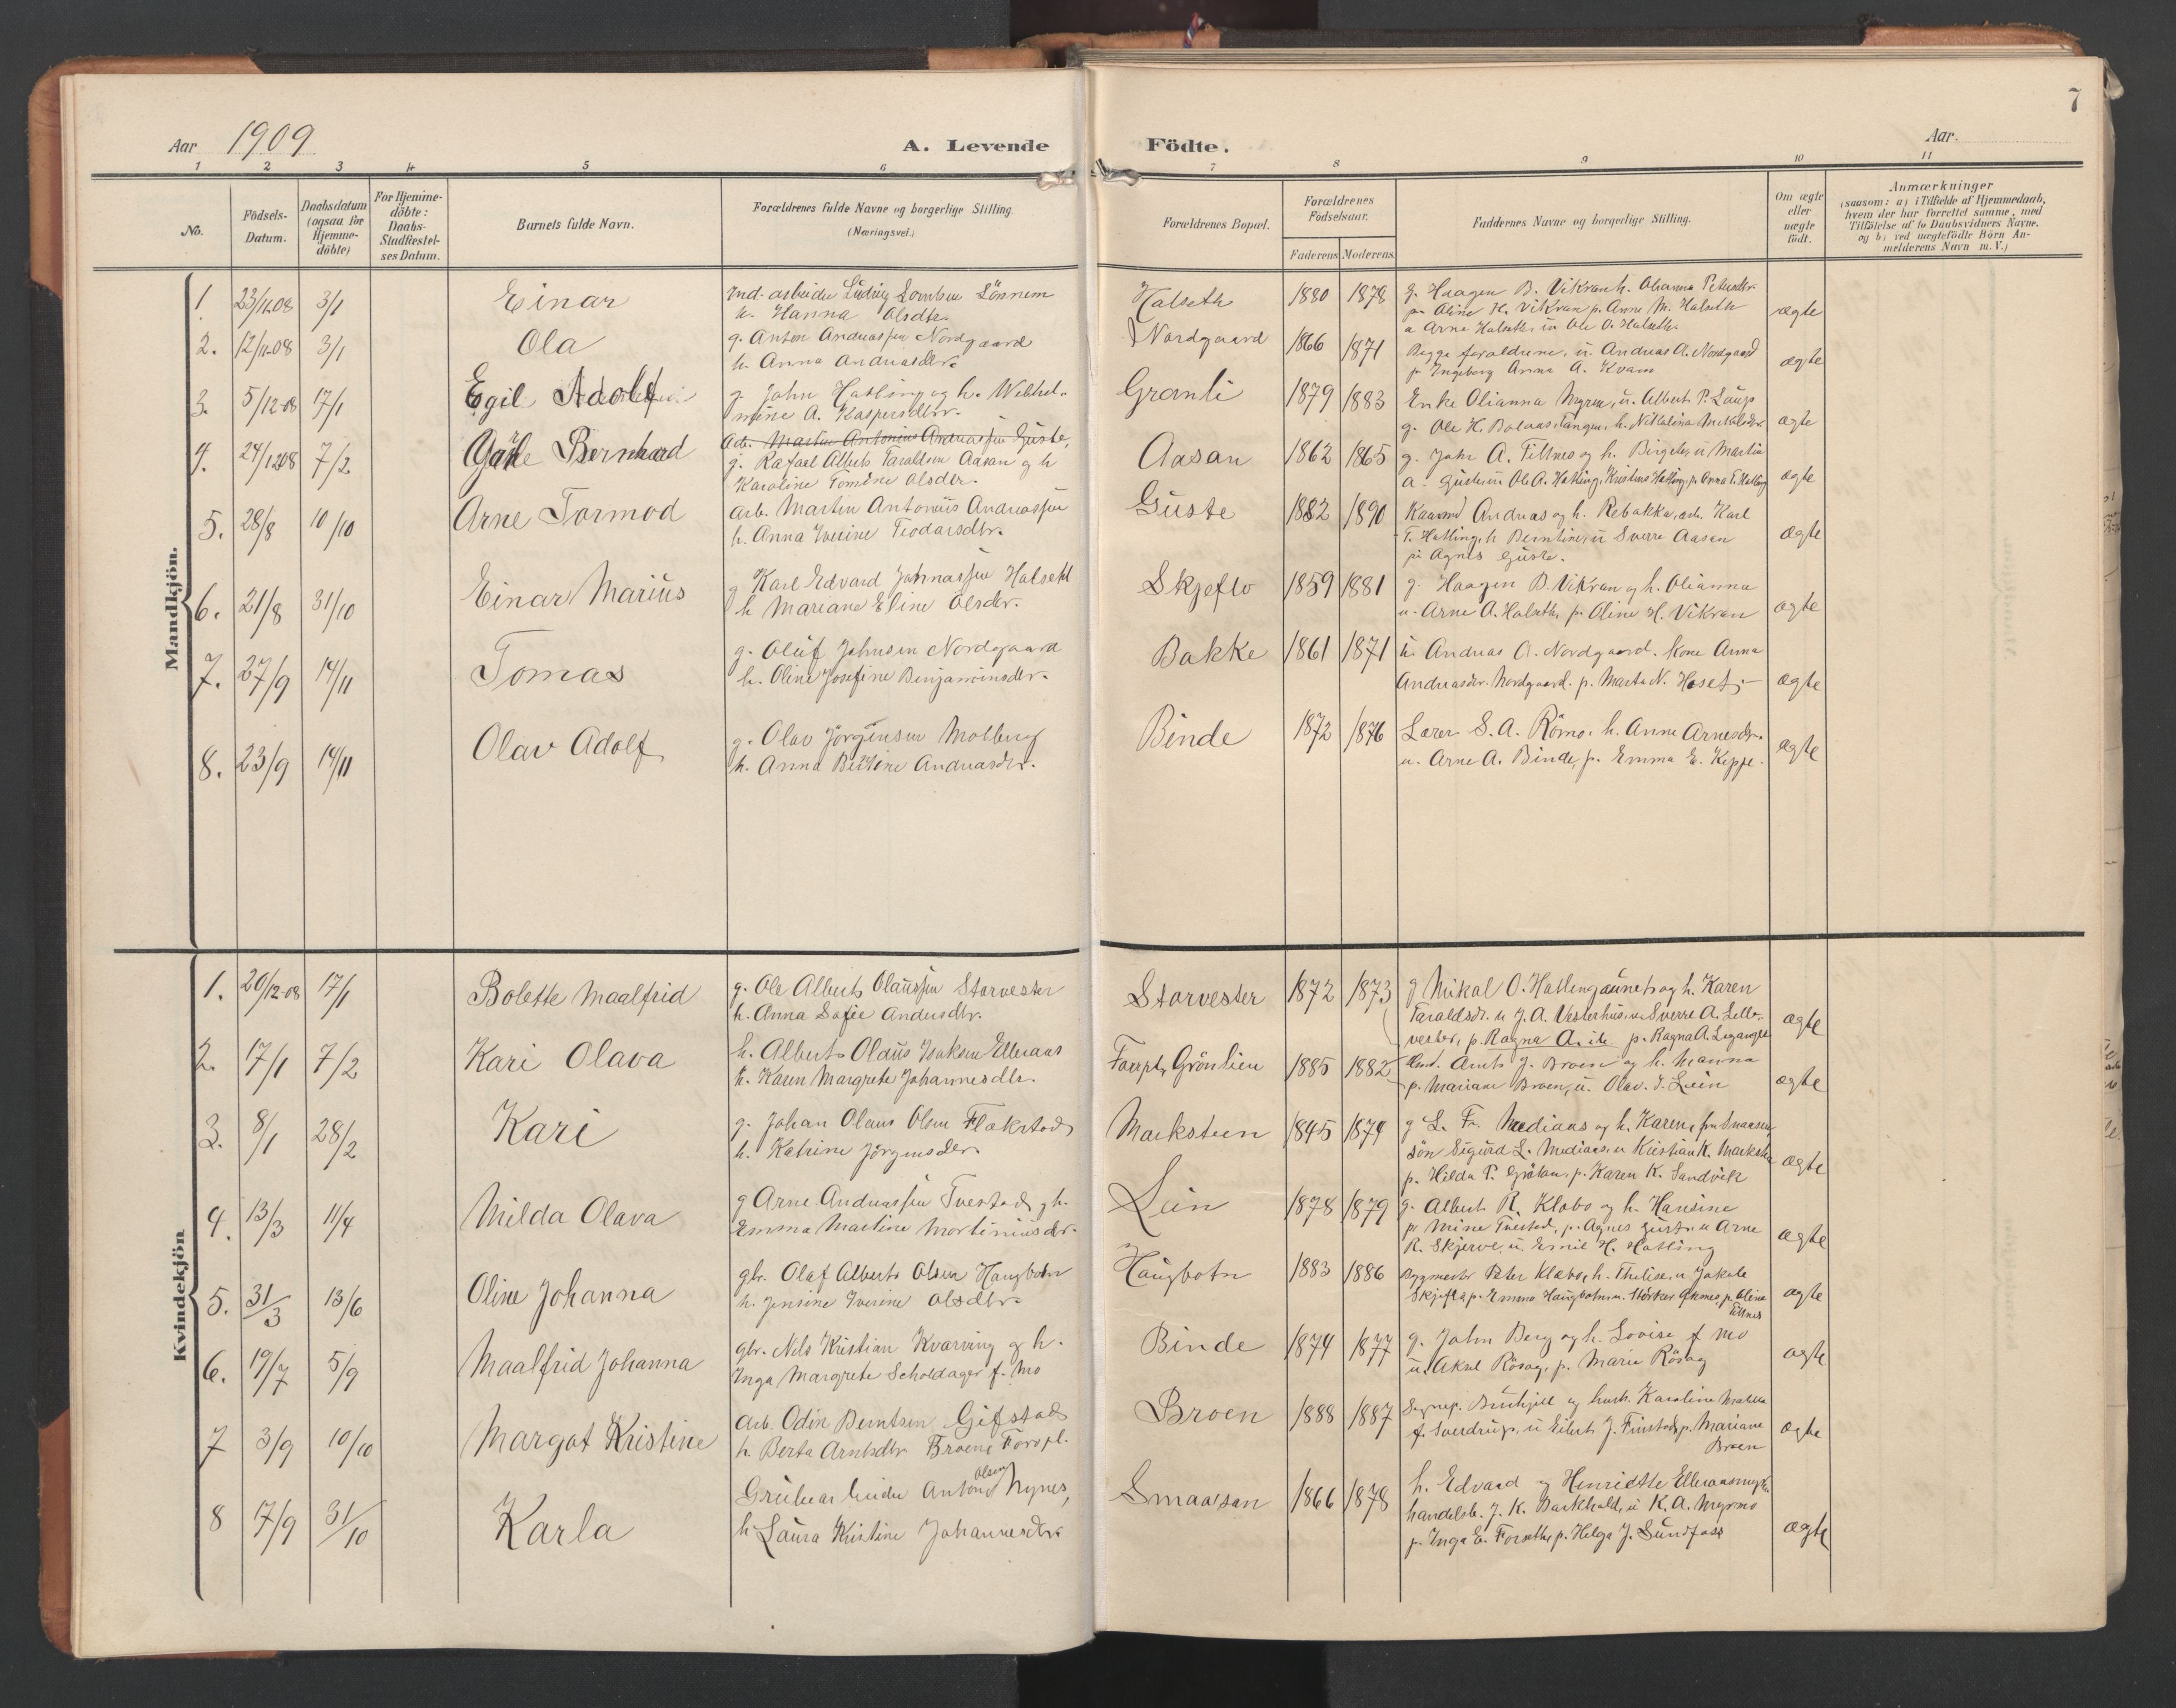 7
Aar 1909
A. Levende Födte.
Aar.
1 2 3 4 5 6 7 8 9 10 11
No.
Födsels-Datum.
Daabsdatum (ogsaa for Hjemme-döbte)
For Hjemme-döbte: Daabs-Stadfestel-ses Datum.
Barnets fulde Navn.
Forældrenes fulde Navne og borgerlige Stilling. (Næringsvei.)
Forældrenes Bopæl.
Forældrenes Födselsaar.
Faderens Moderens
Faddernes Navne og borgerlige Stilling.
Om ægte eller uægte födt.
Anmærkninger
(saasom: a) i Tilfælde af Hjemmedaab,
hvem der har forrettet samme, med
Tilföielse af to Daabsvidners Navne.
og b) ved uægtefödte Börn An-
melderens Navn m. V.)
Mandkjön.
1. 23/11.08 3/1 Einar
Ind. arbeider Ludvig Lorntsen Lönnem
h. Hanna Olsdtr.
Halseth 1880 1878
g. Haagen B. Vikran h. Olianna Petersdtr.
p. Oline H. Vikran p. Anne M. Halseth
u Arne Halseth, u Ole O. Halseth.
ægte
2. 12/11-08 3/1 Ola
g. Anton Andreassen Nordgaard
h. Anna Andreasdtr.
Nordgaard 1866 1871
Begge forældrene, u. Andreas A. Nordgaard
p Ingeborg Anna A. Kvam
ægte
3. 5/12-08 17/1 Egil Adolf
g. John Hatling og h. Wilhel-
mine A. Kaspersdtr.
Grønli 1879 1883
Enke Olianna Myren, u. Albert P. Laup
g. Ole H. Bolaas, Tangen, h. Nikoline Mikalsdtr
ægte
4. 24/12 08 7/2 Bernhard
Arb. Martin Antonius Andreassen Guste,
g. Rafael Alberts Taraldsen Aasan og h
Karoline Tomine Olsdtr.
Aasan 1862 1865
g. John A. Tillnes og h. Birgete, u Martin
a. Guste u Ole A. Hatling, Kristine Hatling, p. Anna T. Hatling
ægte
5. 28/8 10/10 Arne Tormod
Arb. Martin Antonius Andreassen
h. Anna Iverine Teodorsdtr.
Guste 1882 1890
Kaarmd Andreas og h. Rebekka, arb. Karl
T. Hatling, h Berntine, u Sverre Aasen
pi Agnes Guste.
ægte
6. 21/8 31/10 Einar Marius
g Karl Edvard Johnassen Halseth
h Mariane Eline Olsdtr.
Skjeflo 1859 1881
g. Haagen B. Vikran og h. Olianna
u. Arne A. Halseth, p. Oline H. Vikran
ægte
7. 27/9 14/11 Tomas
g. Oluf Johnsen Nordgaard
h. Oline Josefine Benjaminsdtr.
Bakke 1861 1871
u. Andreas A. Nordgaard. Kone Anna
Andreasdtr. Nordgaard. p. Marta N. Hoset
ægte
8. 23/9 14/11 Olav Adolf
g. Olav Jörgensen Molberg
h. Anna Bertine Andreasdtr.
Binde 1872 1876
Lærer S. A. Römo, h. Anne Arnesdtr.
u. Arne A. Binde, p. Emma E. Keppe.
ægte
Kvindekjön
1. 20/12-08 17/1 Bolette Maalfrid
g. Ole Alberts Olaussen Storvester
h. Anna Sofie Andersdtr.
Storvester 1872 1873
g Mikal O. Hatlingaunet og h. Karen
Taraldsdr. u J. A. Vesterhus, u Sverre A. Lille-
vester, p. Ragna A. p. Ragna A.
ægte
2. 17/1 7/2 Kari Olava
h. Albert Olaus Isaksen Elleraas
h. Karen Margrete Johannesdtr.
Forrpl. Grönlien 1885 1882
Arnt J. Broen og h. Marma
p. Mariane Broen, u. Olav. J. Lein
ægte
3. 8/1 28/2 Kari
g. Johan Olaus Olsen Flækstad
h. Katrine Jörgensdtr.
Marksteen 1845 1874
g L. Fr. Mediaas og h. Karen,
sön Sigurd L. Mediaas, u Kristian K. Markstein
p. Hilda P. p. Karen K. Sandvik
ægte
4. 13/3 11/4 Milda Olava
g Arne Andreassen Tvestad, g h.
Emma Martine Mortiniusdtr.
Lein 1878 1879
g. Albert R. Klobo og h. Hansine
p. Mina Tvestad, p. Agnes Guste u Arne
R. Skjerve, u. Emil H. Hatling
ægte
5. 31/3 13/6 Oline Johanna
gbr. Olaf Alberts Olsen Haugbotn
h. Jensine Iverine Olsdtr.
Haugbotn 1883 1886
Bygmester Peter Klæbo, h. Theline, u Jakob
Skjefta p. Emma Haugbotn u. Störker p. Oline
Tillnes
ægte
6. 19/7 5/9 Maalfrid Johanna
gbr. Nils Kristian Kvarving og h.
Inga Margrete Scholdager f. Mo
Binde 1874 1877
g. John Berg og h. Lovise f Mo
u. Aksel Rösag, p. Marie Rösag
ægte
7 3/9 10/10 Margot Kristine
Arb. Odin Berntsen Gifstad
h Berta Arntsdtr Broene Forrpl.
Broen 1888 1887
Sognep. Buchjell og hust. Karoline Matilda
f. Sverdrup. u Eilert J. Finstad, p. Mariane
Broen
ægte
8 17/9 31/10 Karla
Grubearbeider Anton Olsen Mynes,
h Laura Kristine Johannesdtr
Smaasan 1866 1878
h. Edvard og Henriette Elleraasmyr
handelsb. J. K. Barkhald, u K. A. Myrmo
p. Inga E. Forseth, p. Helga J. Sundfoss
ægte